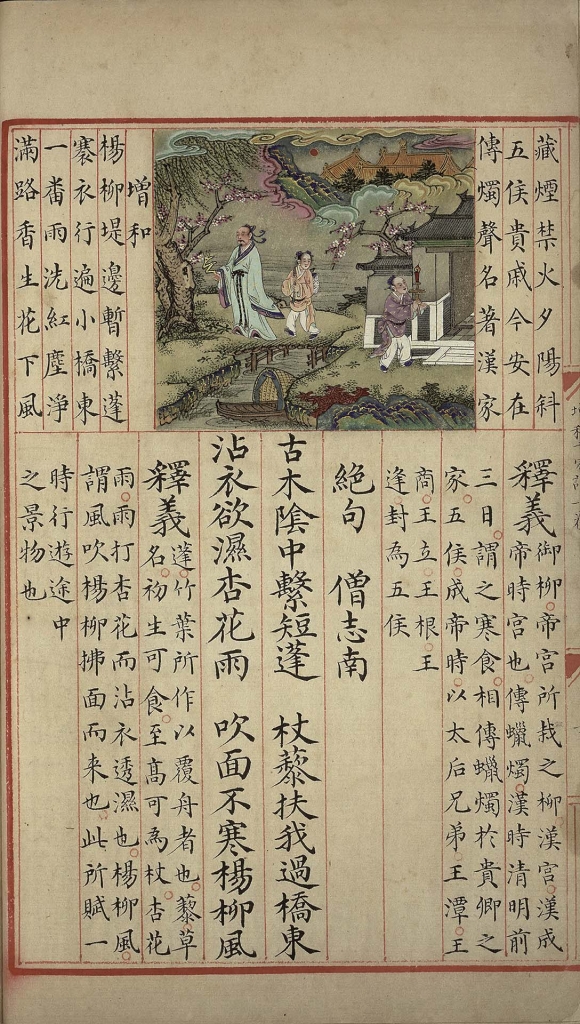 藏煙禁火夕陽斜
五侯貴戚今安在
傳燭聲名著漢家
增和
楊柳堤邊暫繫蓬
褰衣行遍小橋東
一畨雨洗紅塵淨
滿路香生花下風
釋義
御柳帝宮所栽之柳漢宮漢成
帝時宮也傳蠟燭漢時清明前
三日謂之寒食相傳蠟燭於貴卿之
家五侯成帝時以太后兄弟王潭王
商王立王根王
逢封為五侯
絕句 僧志南
古木陰中繫短蓬 杖藜扶我過橋東
沾衣欲濕杏花雨 吹面不寒楊柳風
釋義
蓬竹葉所作以覆舟者也藜草
名初生可食至高可為杖杏花
雨雨打杏花而沾衣透濕也楊柳風
謂風吹楊柳拂面而来也此所賦一
時行遊途中
之景物也